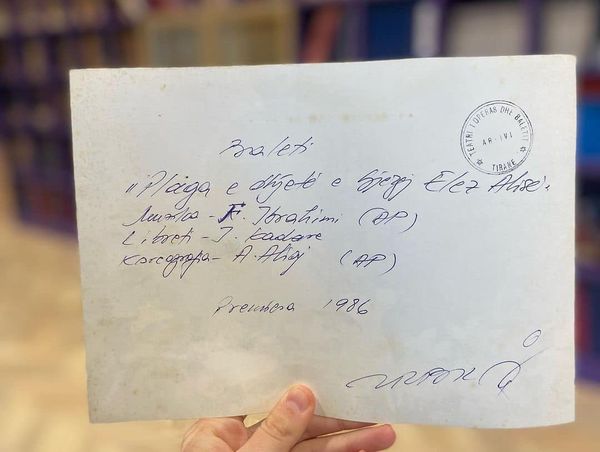 TEATRI I OPERAS DHE BALETIT
AR-IVI
TIRANË
Baleti
"Plaga e dhjetë e Gjergj Elez Alisë"
Muzika - F. Ibrahimi (AP)
Libreti - I. Kadare
Koreografia - A. Aliaj (AP)
Premiera 1986